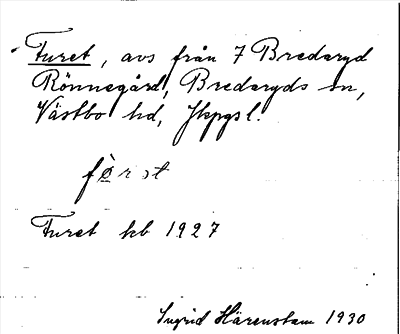 Furet, avs från 7 Bredaryd
Rönnegård, Bredaryds sn,
Västbo hd, Jkpgs l.
fø̀r st
Furet kb 1927
Ingrid Härenstam 1930